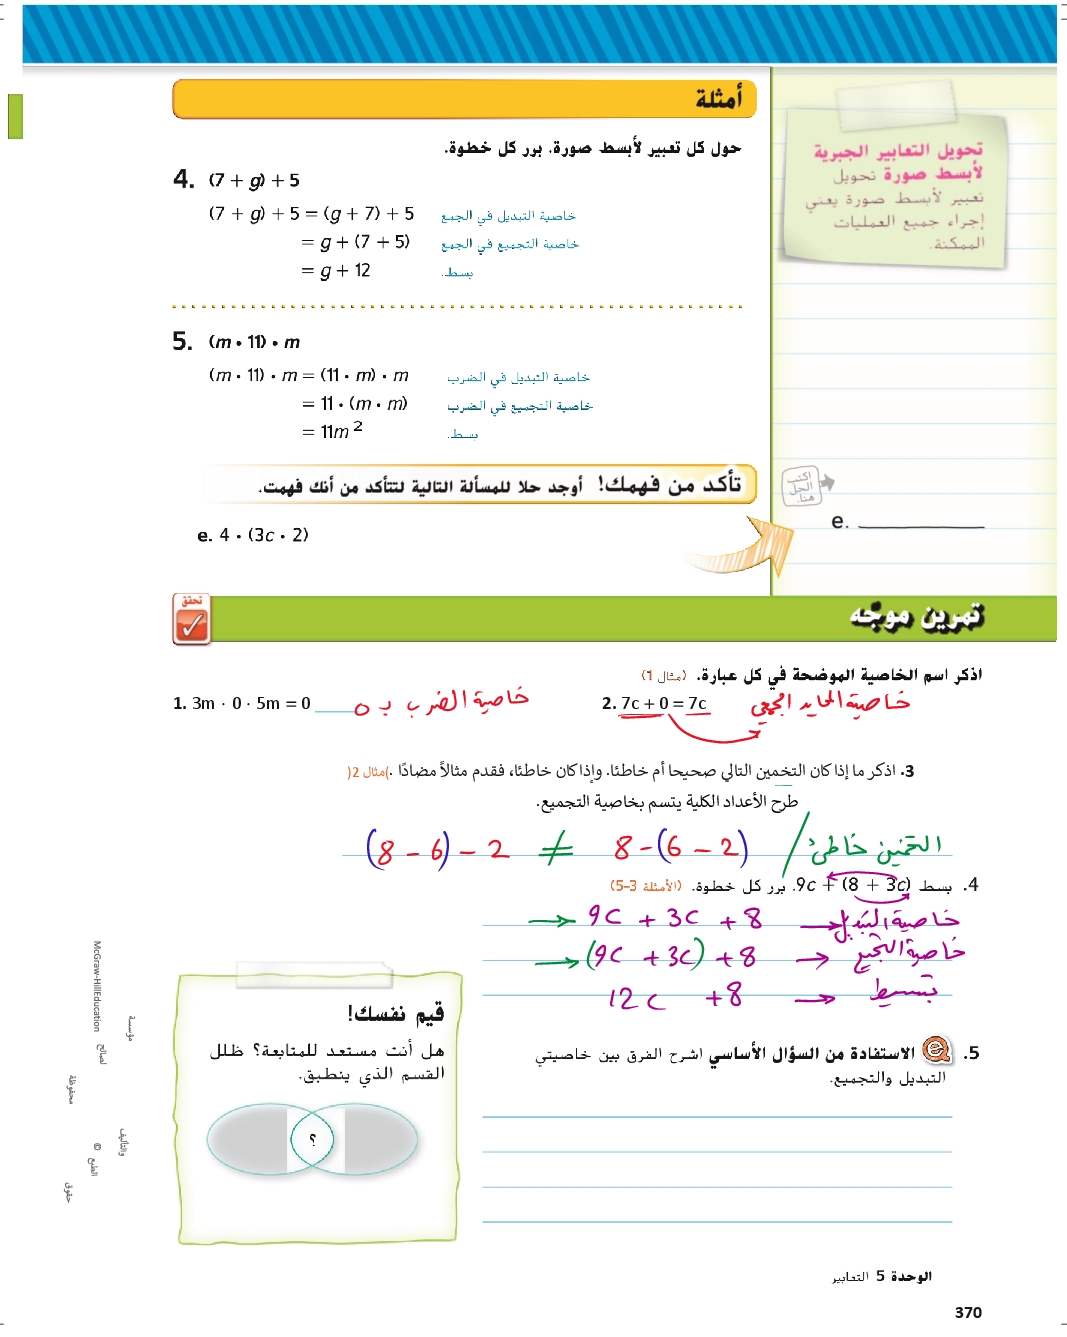 أمثلة
حول كل تعبير لأبسط صورة. برر كل خطوة.
4. (7 + g) + 5
(7 + g) + 5 = (g + 7) + 5 خاصية التبديل في الجمع
= g + (7 + 5) خاصية التجميع في الجمع
= g + 12 بسط.
5. (m • 11) • m
(m • 11) • m = (11 • m) • m خاصية التبديل في الضرب
= 11 • (m • m) خاصية التجميع في الضرب
= 11m² بسط.
تحويل التعابير الجبرية
لأبسط صورة تحويل
تعبير لأبسط صورة يعني
إجراء جميع العمليات
الممكنة.
تأكد من فهمك! أوجد حلا للمسألة التالية لتتأكد من أنك فهمت.
e. 4 • (3c • 2)
اكتب
الحل
هنا.
e.
تحقق
تمرين موجّه
اذكر اسم الخاصية الموضحة في كل عبارة. (مثال 1)
1. 3m · 0 · 5m = 0 خاصية الضرب بـ 0
2. 7c + 0 = 7c خاصية المحايد الجمعي
3. اذكر ما إذا كان التخمين التالي صحيحا أم خاطئا. وإذا كان خاطئا، فقدم مثالاً مضادًا .)مثال 2(
طرح الأعداد الكلية يتسم بخاصية التجميع.
التخمين خاطئ / (8 – 6) – 2 ≠ 8 – (6 – 2)
4. بسط 9c + (8 + 3c). برر كل خطوة. (الأمثلة 3–5)
→ 9c + 3c + 8 → خاصية التبديل
→ (9c + 3c) + 8 → خاصية التجميع
12c + 8 → تبسيط
5. e الاستفادة من السؤال الأساسي اشرح الفرق بين خاصيتي
التبديل والتجميع.
قيم نفسك!
هل أنت مستعد للمتابعة؟ ظلل
القسم الذي ينطبق.
؟
حقوق الطبع © والتأليف محفوظة لصالح مؤسسة McGraw-HillEducation
الوحدة 5 التعابير
370